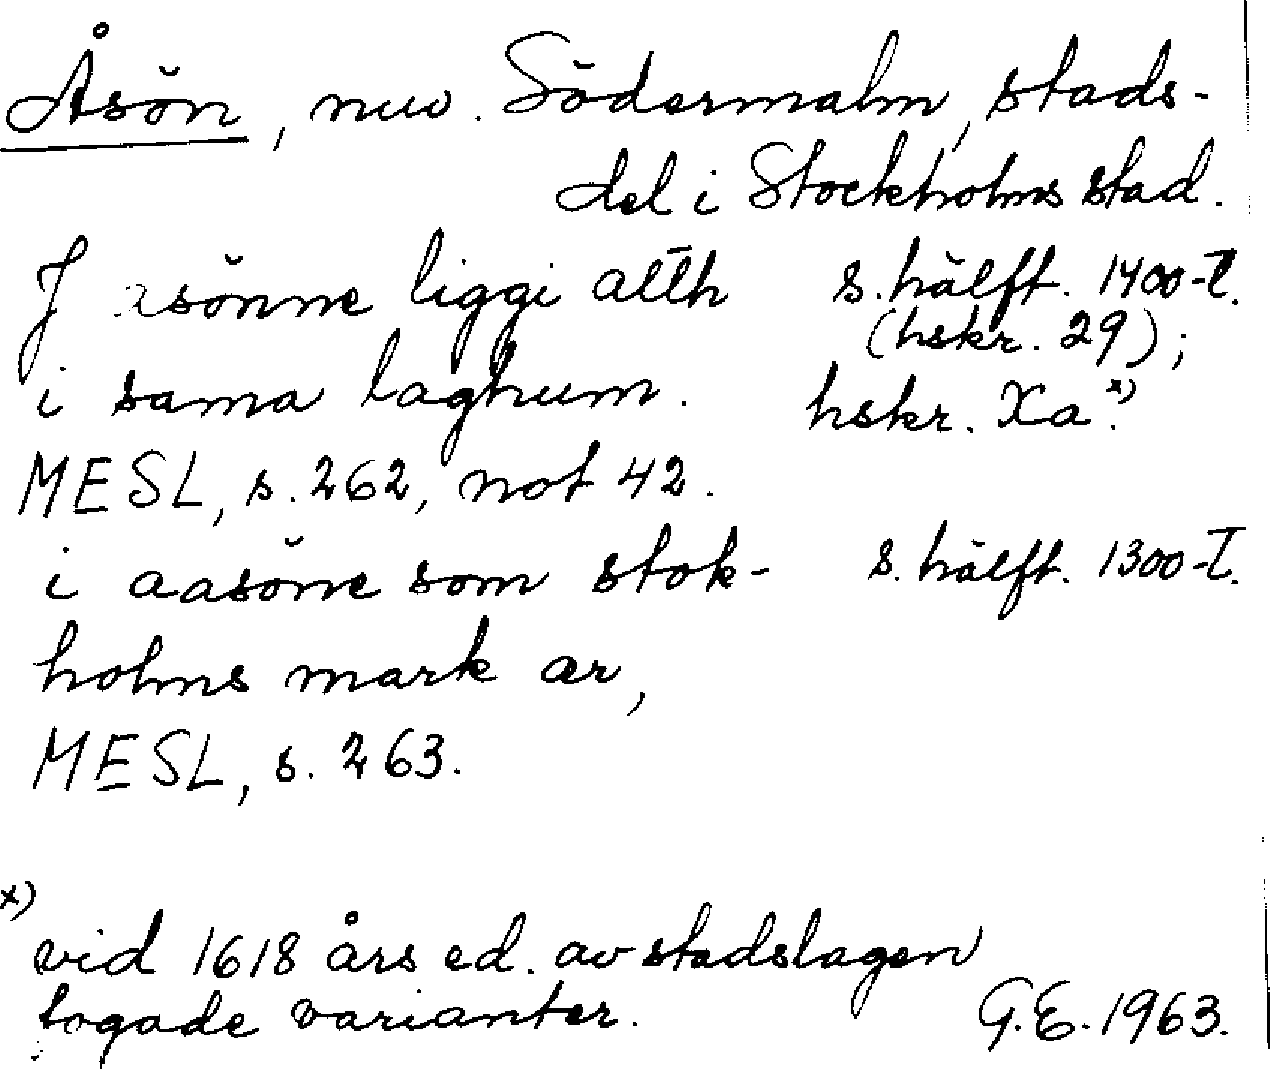 Åsön, nuv. Södermalm, stads-
del i Stockholms stad.
J asönne liggi alth s. hälft. 1400-t.
(hskr. 29);
i sama laghum. hskr. Xa.x)
MESL, s. 262, not 42.
i aasöne som stok- s. hälft. 1300-t.
holms mark ær,
MESL, s. 263.
x)
vid 1618 års ed. av stadslagen
fogade varianter. G.E. 1963.